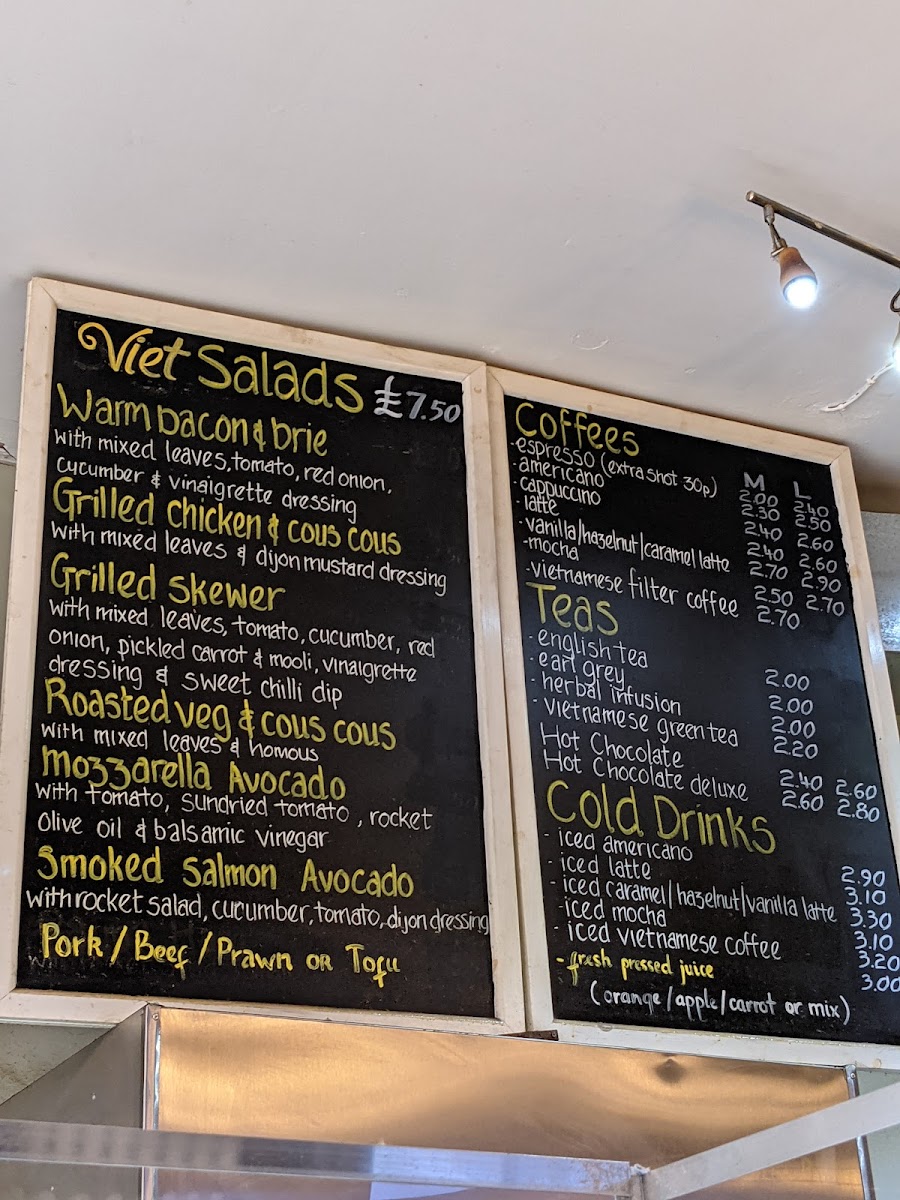 Viet Salads £7.50
Warm bacon & brie
with mixed leaves, tomato, red onion,
cucumber & vinaigrette dressing
Grilled chicken & cous cous
with mixed leaves & dijon mustard dressing
Grilled skewer
with mixed leaves, tomato, cucumber, red
onion, pickled carrot & mooli, vinaigrette
dressing & sweet chilli dip
Roasted veg & cous cous
with mixed leaves & homous
mozzarella Avocado
with tomato, sundried tomato, rocket
olive oil & balsamic vinegar
Smoked Salmon Avocado
with rocket salad, cucumber, tomato, dijon dressing
Pork / Beef / Prawn or Tofu
Coffees M L
-espresso (extra shot 30p) 2.00 2.40
-americano 2.30 2.50
-cappuccino 2.40 2.60
-latte 2.40 2.60
-vanilla/hazelnut/caramel latte 2.70 2.90
-mocha 2.50 2.70
-vietnamese filter coffee 2.70
Teas
- english tea 2.00
- earl grey 2.00
- herbal infusion 2.00
- vietnamese green tea 2.20
Hot Chocolate 2.40 2.60
Hot Chocolate deluxe 2.60 2.80
Cold Drinks
- iced americano 2.90
- iced latte 3.10
- iced caramel/hazelnut/vanilla latte 3.30
-iced mocha 3.10
- iced vietnamese coffee 3.20
- fresh pressed juice 3.00
(orange/apple/carrot or mix)